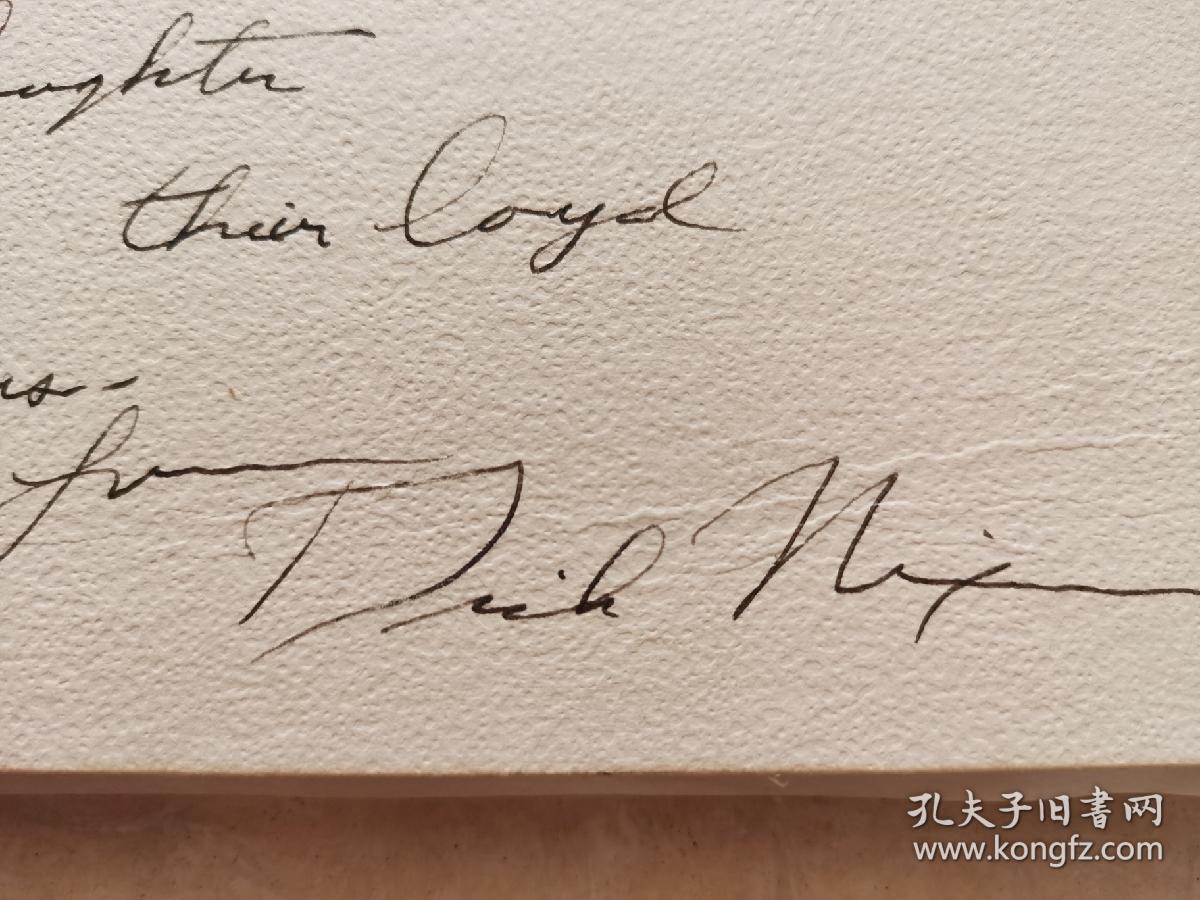 aughter
their loyal
us-
from Dick Nixon
孔夫子旧書网
www.kongfz.com